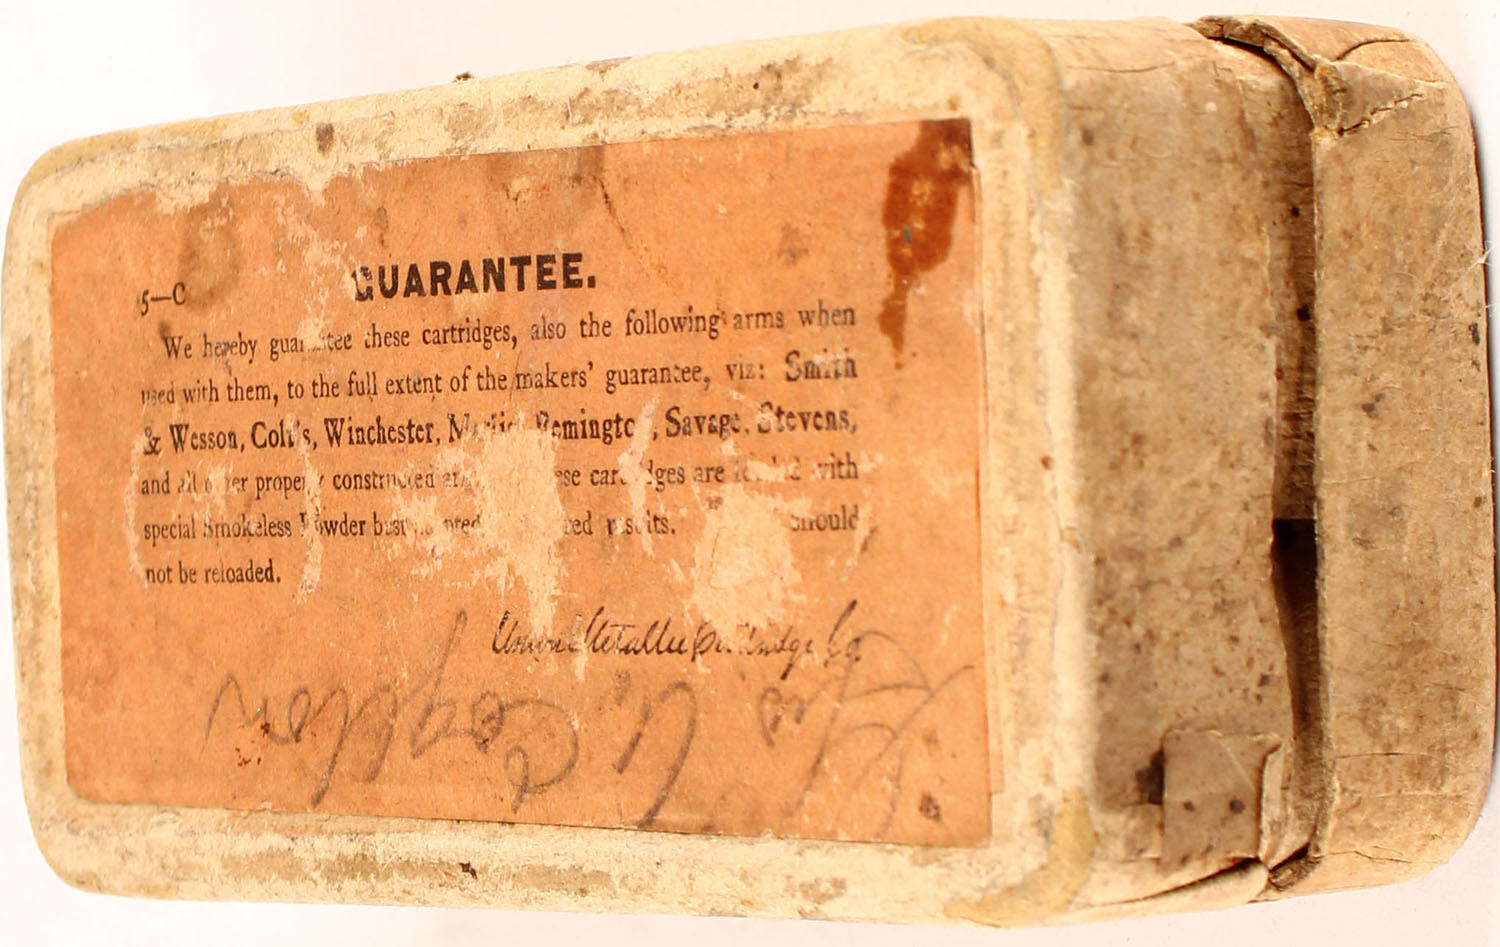 GUARANTEE.
5—C
We hereby guarantee these cartridges, also the following arms when
used with them, to the full extent of the makers' guarantee, viz: Smith
& Wesson, Colt's, Winchester, Marlin, Remington, Savage, Stevens,
and all other properly constructed these cartridges are loaded with
special Smokeless Powder best results. should
not be reloaded.
Union Metallic Cartridge Co.